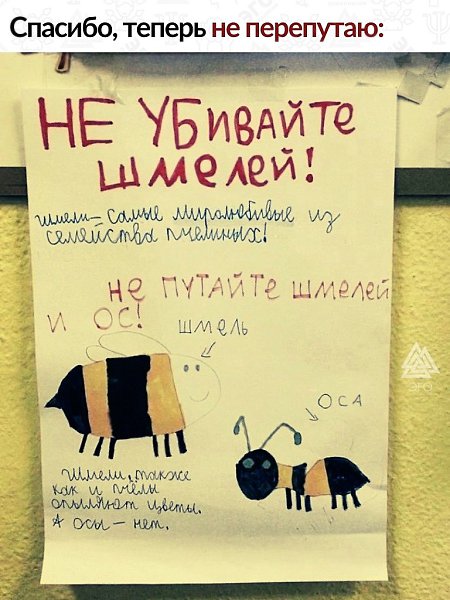 Спасибо, теперь не перепутаю:
НЕ УБИВАЙТЕ
ШМЕЛЕЙ!
Шмели – самые миролюбивые из
семейства пчелиных!
НЕ ПУТАЙТЕ ШМЕЛЕЙ
И ОС!
ШМЕЛЬ
ОСА
Шмели, также
как и пчёлы
опыляют цветы.
А осы – нет.
ЭГО